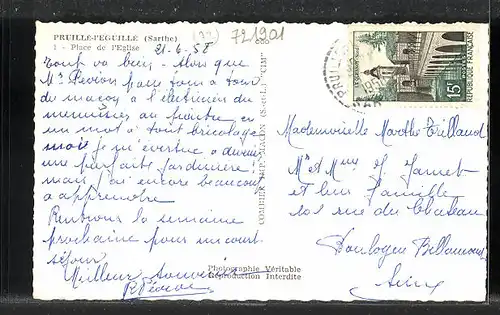 PRUILLÉ-L'ÉGUILLÉ (Sarthe)
1 - Place de l'Eglise
721901
21-6-58
Tout va bien - Alors que
Mr Pévion passe tour à tour
de maçon à l'électricien du
menuisier au peintre en
un mot à tout bricolage
moi je m'évertue à devenir
une parfaite jardinière
mais j'ai encore beaucoup
à apprendre
Rentrons la semaine
prochaine pour un court
séjour
Meilleur souvenir
COMBIER IMP. MACON (S.-et-L.) "CIM"
Photographie Véritable
Reproduction Interdite
15F
REPUBLIQUE FRANÇAISE
Mademoiselle Marthe Trillaud
Mr et Mme J. Jamet
et leur famille
rue du Château
Boulogne Billancourt
Seine